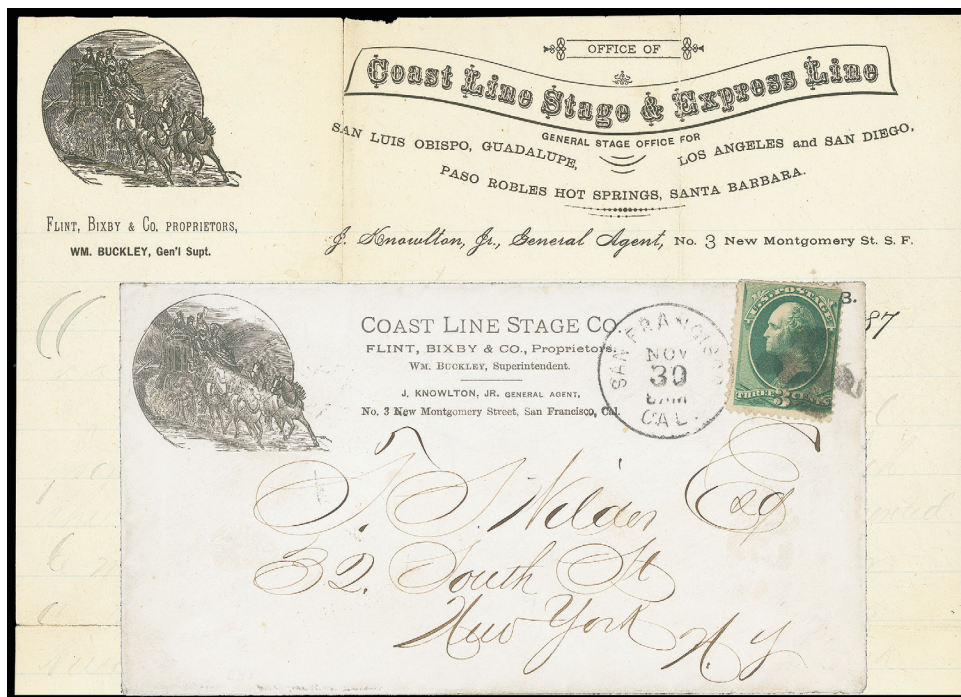 OFFICE OF
Coast Line Stage & Express Line
GENERAL STAGE OFFICE FOR
SAN LUIS OBISPO, GUADALUPE, LOS ANGELES and SAN DIEGO,
PASO ROBLES HOT SPRINGS, SANTA BARBARA.
FLINT, BIXBY & CO. PROPRIETORS,
WM. BUCKLEY, Gen'l Supt.
J. Knowlton, Jr., General Agent, No. 3 New Montgomery St. S. F.
B.
87
COAST LINE STAGE CO.
FLINT, BIXBY & CO., Proprietors.
WM. BUCKLEY, Superintendent.
J. KNOWLTON, JR. GENERAL AGENT,
No. 3 New Montgomery Street, San Francisco, Cal.
SAN FRANCISCO
NOV
30
8AM
CAL.
U.S. POSTAGE
THREE 3 CENTS
T. S. Wilder Esq
52. South St
New York N. Y